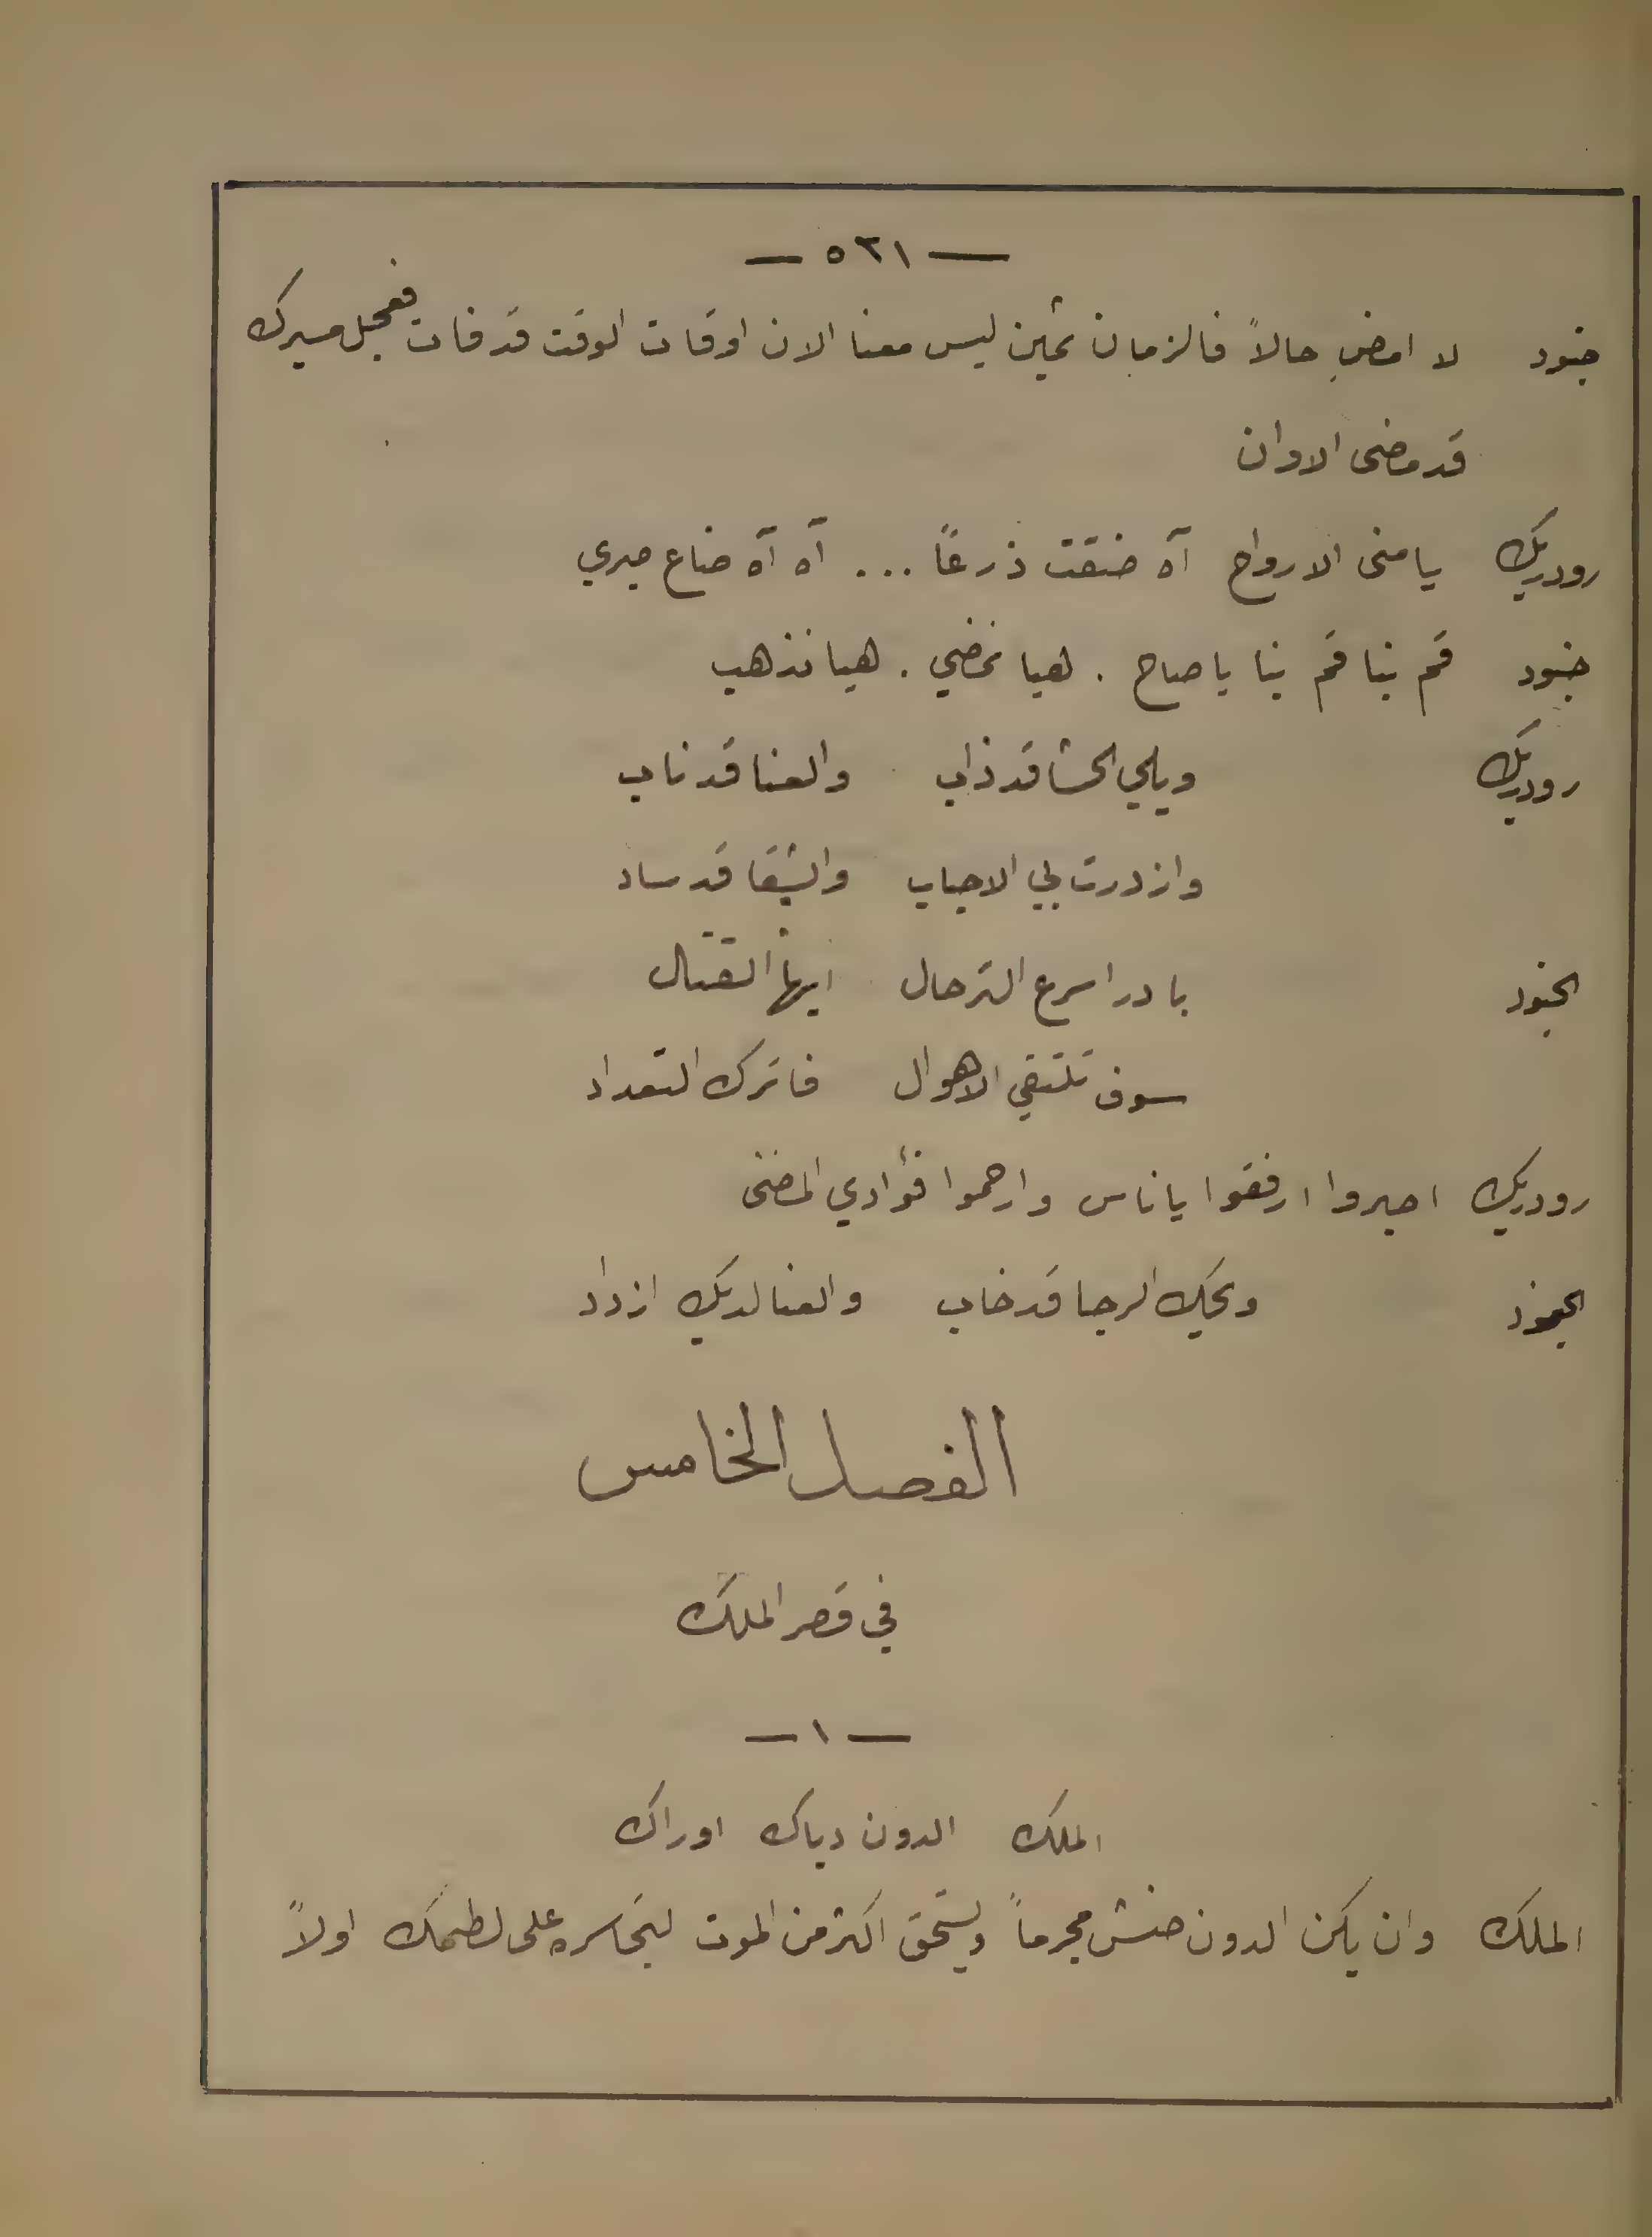 — ٥٢١ —
جنود لا امضِ حالاً فالزمان ثمين ليس معنا الان اوقات الوقت قد فات فعجل سيرك
قد مضى الاوان
رودريك يا منى الارواح آه ضقت ذرعاً ... آه آه ضاع صبري
جنود قم بنا قم بنا يا صاح . هيا نمضي . هيا نذهب
رودريك ويلي الحشا قد ذاب والعنا قد ناب
وازدرت بي الاحباب والشقا قد ساد
الجنود بادر اسرع الترحال ايها القتال
سوف تلتقي الاهوال فاترك التعداد
رودريك اصبروا ارفقوا يا ناس وارحموا فؤادي المضنى
الجنود ويحك الرجا قد خاب والعنا لديك ازداد
الفصل الخامس
في قصر الملك
— ١ —
الملك الدون دياك اوراك
الملك وان يكن الدون صنش مجرماً ويستحق اكثر من الموت لتجاسره على لطمك اولاً